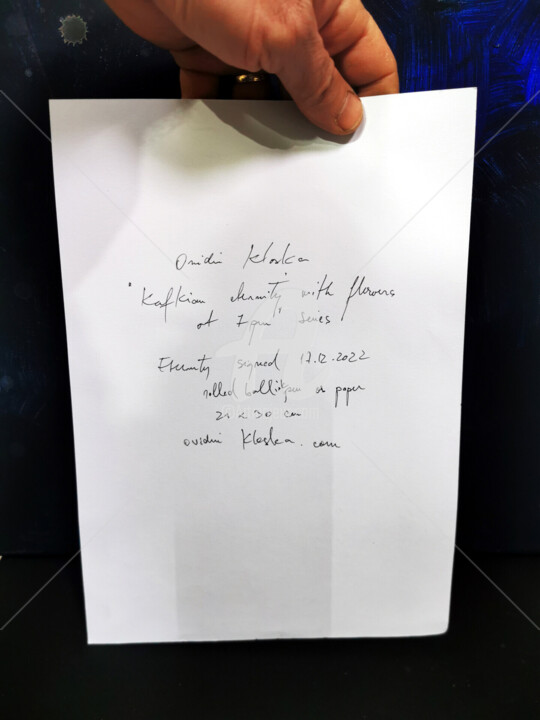 Ovidiu Kloska
"Kafkian eternity with flowers
of 7 pm" series
Eternity signed 17.12.2022
rolled on paper
21 x 30 cm
ovidiu kloska.com